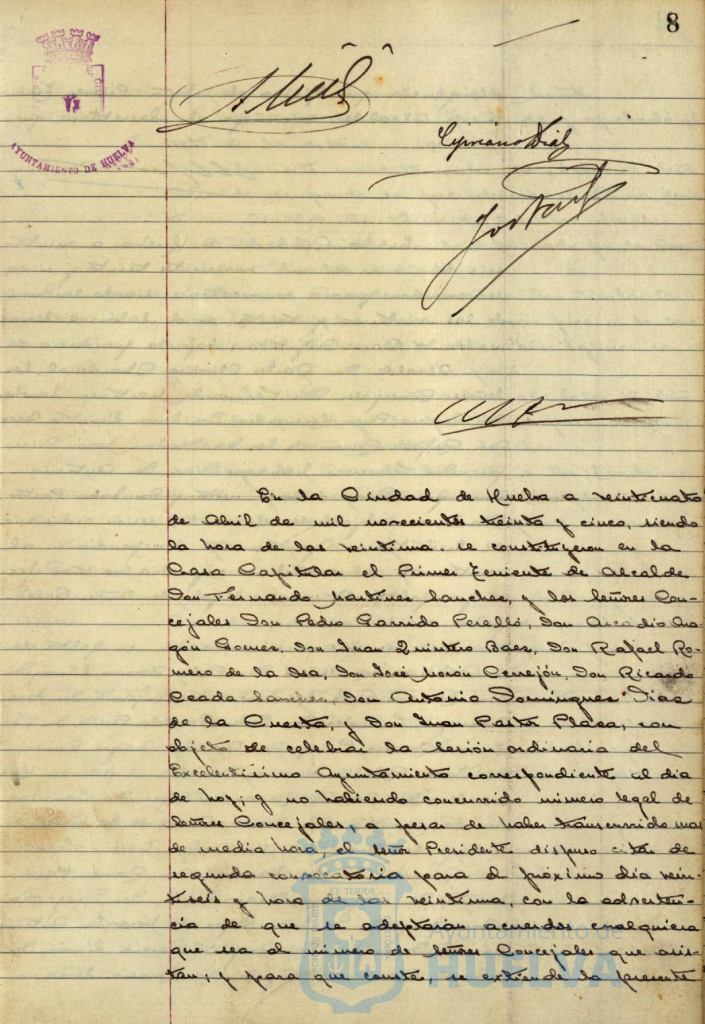 8
AYUNTAMIENTO DE HUELVA
Cipriano Diaz
En la Ciudad de Huelva a veinticuatro
de Abril de mil novecientos treinta y cinco, siendo
la hora de las veintiuna, se constituyeron en la
Casa Capitular el Primer Teniente de Alcalde
Don Fernando Martinez Sanchez, y los Señores Con-
cejales Don Pedro Garrido Perelló, Don Arcadio Ara-
gón Gomez, Don Juan Quintero Baez, Don Rafael Ro-
mero de la Osa, Don José Morón Cerrejón, Don Ricardo
Ceada Sanchez, Don Antonio Dominguez Diaz
de la Cuesta, y Don Juan Pastor Plaza, con
objeto de celebrar la sesión ordinaria del
Excelentísimo Ayuntamiento correspondiente al dia
de hoy; y no habiendo concurrido número legal de
Señores Concejales, a pesar de haber transcurrido mas
de media hora, el Señor Presidente dispuso citar de
segunda convocatoria para el próximo día vein-
tiseis y hora de las veintiuna, con la adverten-
cia de que se adoptarán acuerdos cualquiera
que sea el número de Señores Concejales que asis-
tan; y para que conste, se extiende la presente
Ayuntamiento de
HUELVA